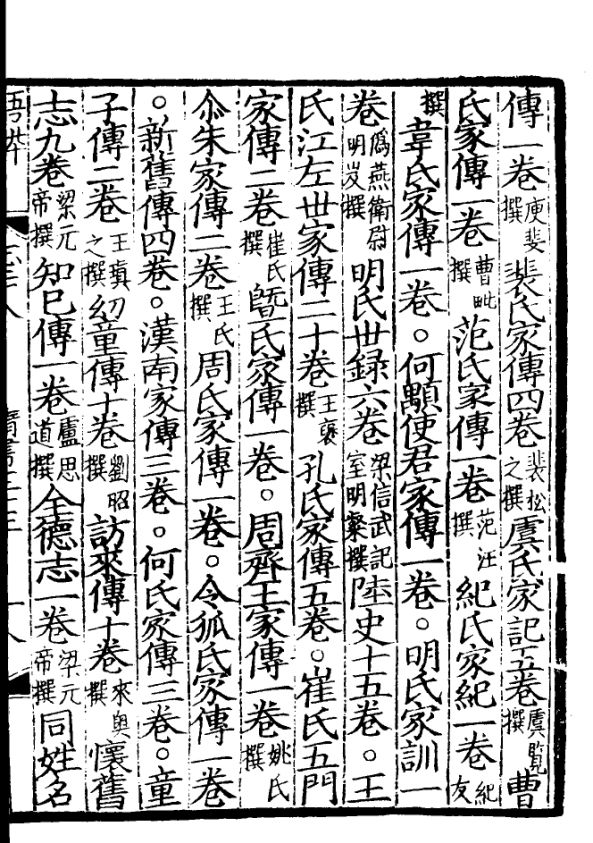 傳一卷庾斐撰裴氏家傳四卷裴松之撰虞氏家記五卷虞覽撰曹
氏家傳一卷曹毗撰范氏家傳一卷范汪撰紀氏家紀一卷紀友
撰韋氏家傳一卷。何顒使君家傳一卷。明氏家訓一
卷爲燕衛尉明岌撰明氏世録六卷梁信武記室明粲撰陸史十五卷。王
氏江左世家傳二十卷王襃撰孔氏家傳五卷。崔氏五門
家傳二卷崔氏撰曁氏家傳一卷。周齊王家傳一卷姚氏撰
尒朱家傳二卷王氏撰周氏家傳一卷。令狐氏家傳一卷
。新舊傳四卷。漢南家傳三卷。何氏家傳三卷。童
子傳二卷王瑱之撰幼童傳十卷劉昭撰訪來傳十卷來奥撰懷舊
志九卷梁元帝撰知巳傳一卷盧思道撰全德志一卷梁元帝撰同姓名